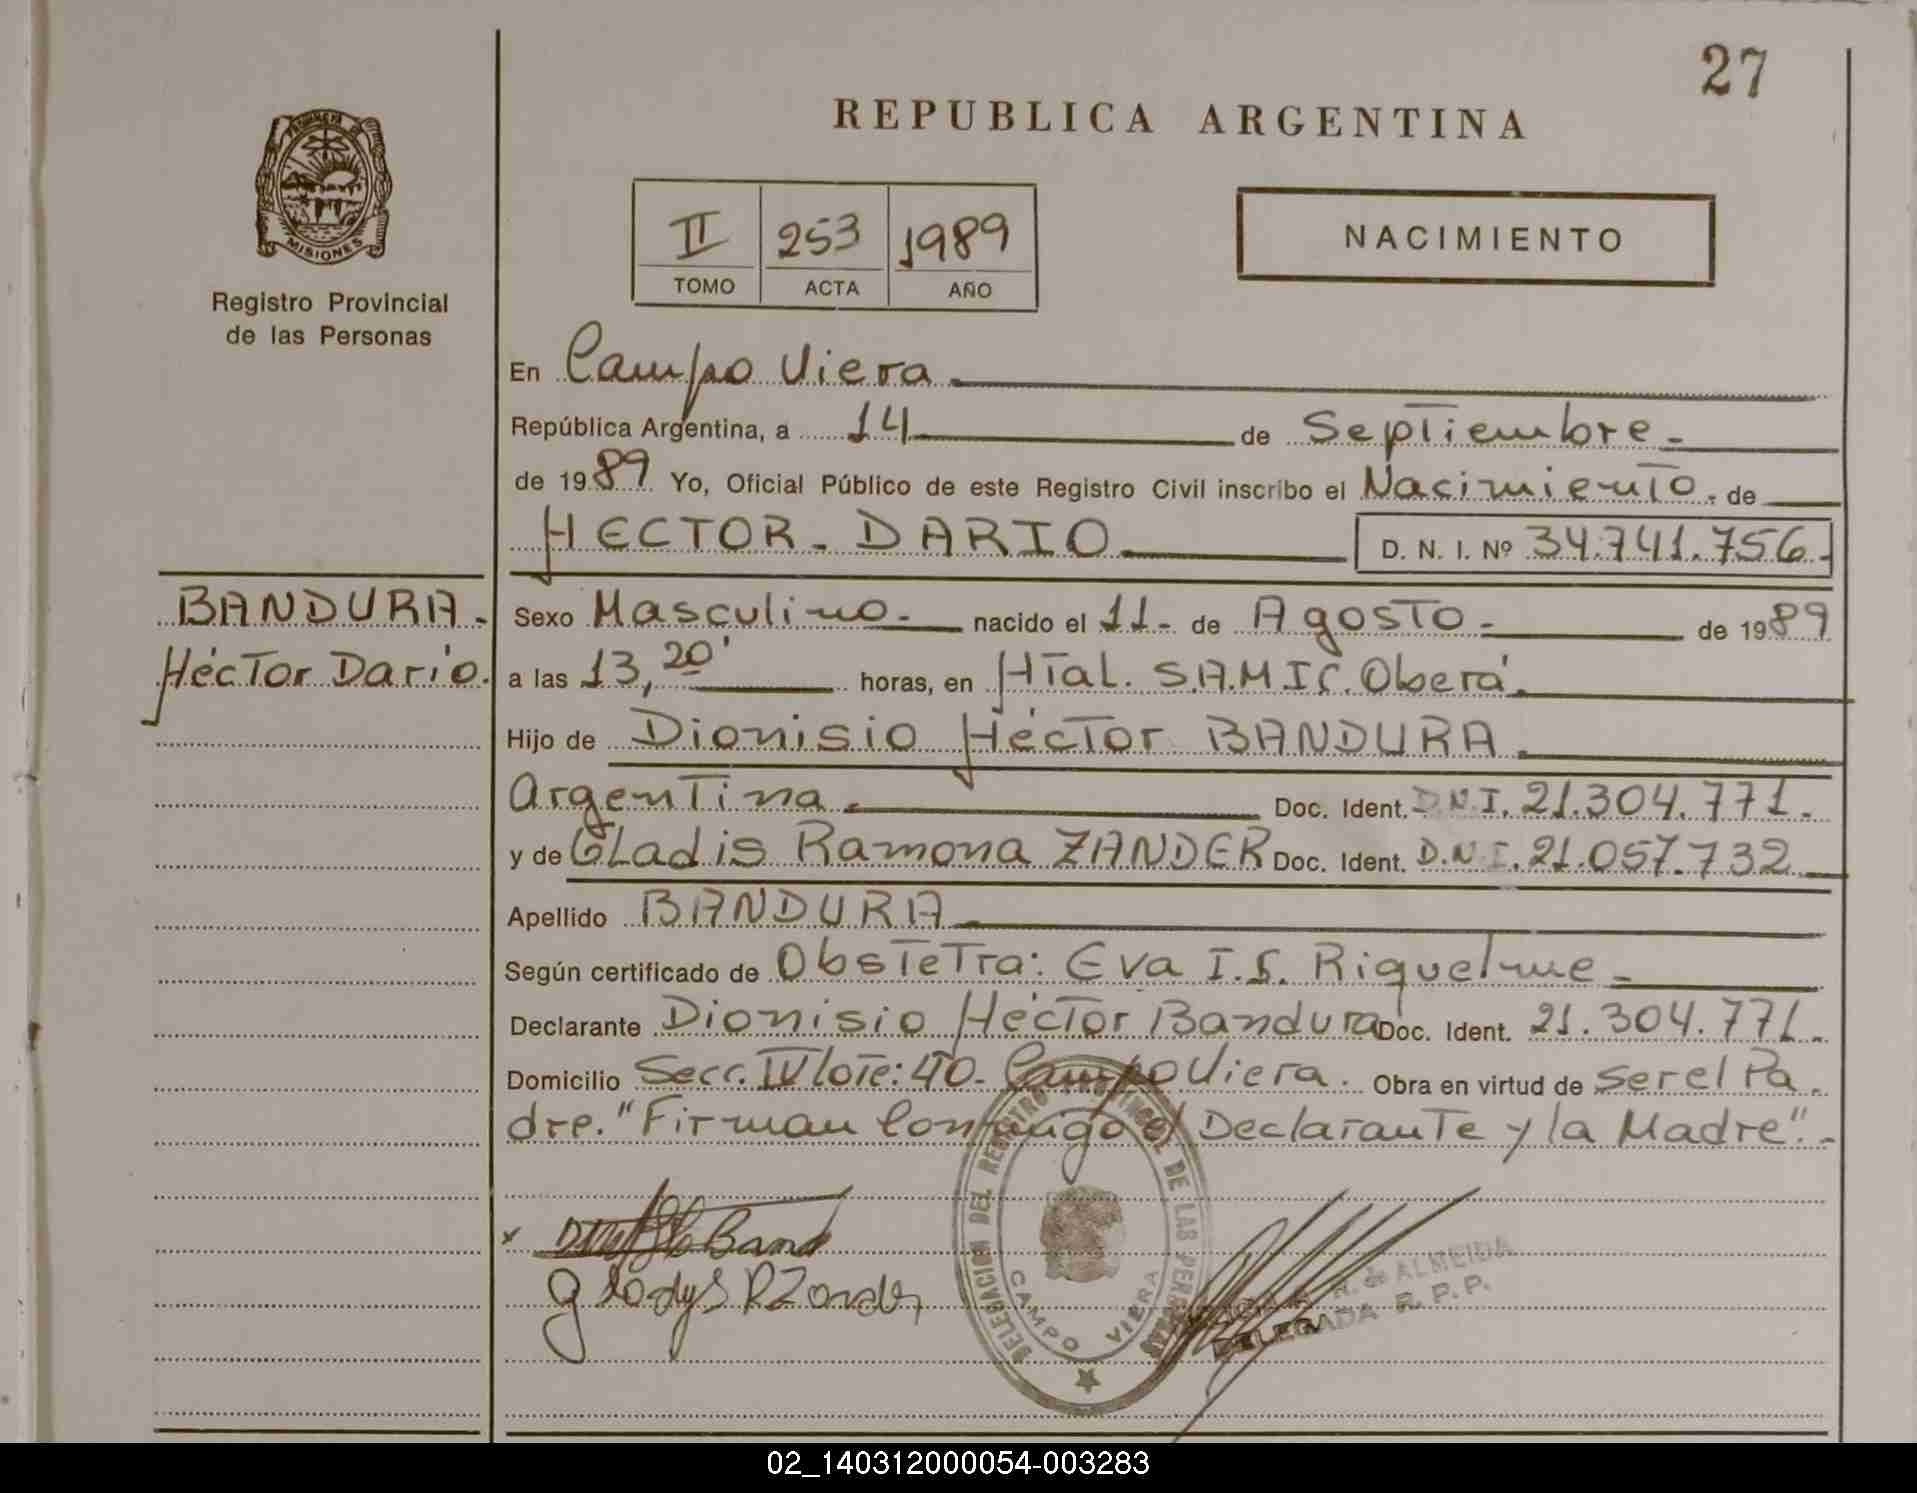 27
REPUBLICA ARGENTINA
PROVINCIA DE
MISIONES
Registro Provincial
de las Personas
II 253 1989
TOMO ACTA AÑO
NACIMIENTO
En Campo Viera
República Argentina, a 14 de Septiembre
de 1989 Yo, Oficial Público de este Registro Civil inscribo el Nacimiento. de
HECTOR - DARIO D. N. I. Nº 34.741.756
BANDURA
Héctor Darío.
Sexo Masculino nacido el 11 de Agosto de 1989
a las 13,20' horas, en Htal. S.A.M.I.C. Oberá
Hijo de Dionisio Héctor BANDURA
Argentina Doc. Ident. D.N.I. 21.304.771
y de Gladis Ramona ZANDER Doc. Ident. D.N.I. 21.057.732
Apellido BANDURA
Según certificado de Obstetra: Eva I. S. Riquelme
Declarante Dionisio Héctor Bandura Doc. Ident. 21.304.771
Domicilio Secc. IV lote: 40 - Campo Viera. Obra en virtud de ser el Pa
dre. "Firman conmigo el Declarante y la Madre".
x Band
Gladys R Zander
DELEGACION DEL REGISTRO PROVINCIAL DE LAS PERSONAS
CAMPO VIERA
R. de ALMEIDA
DELEGADA R. P. P.
02_140312000054-003283